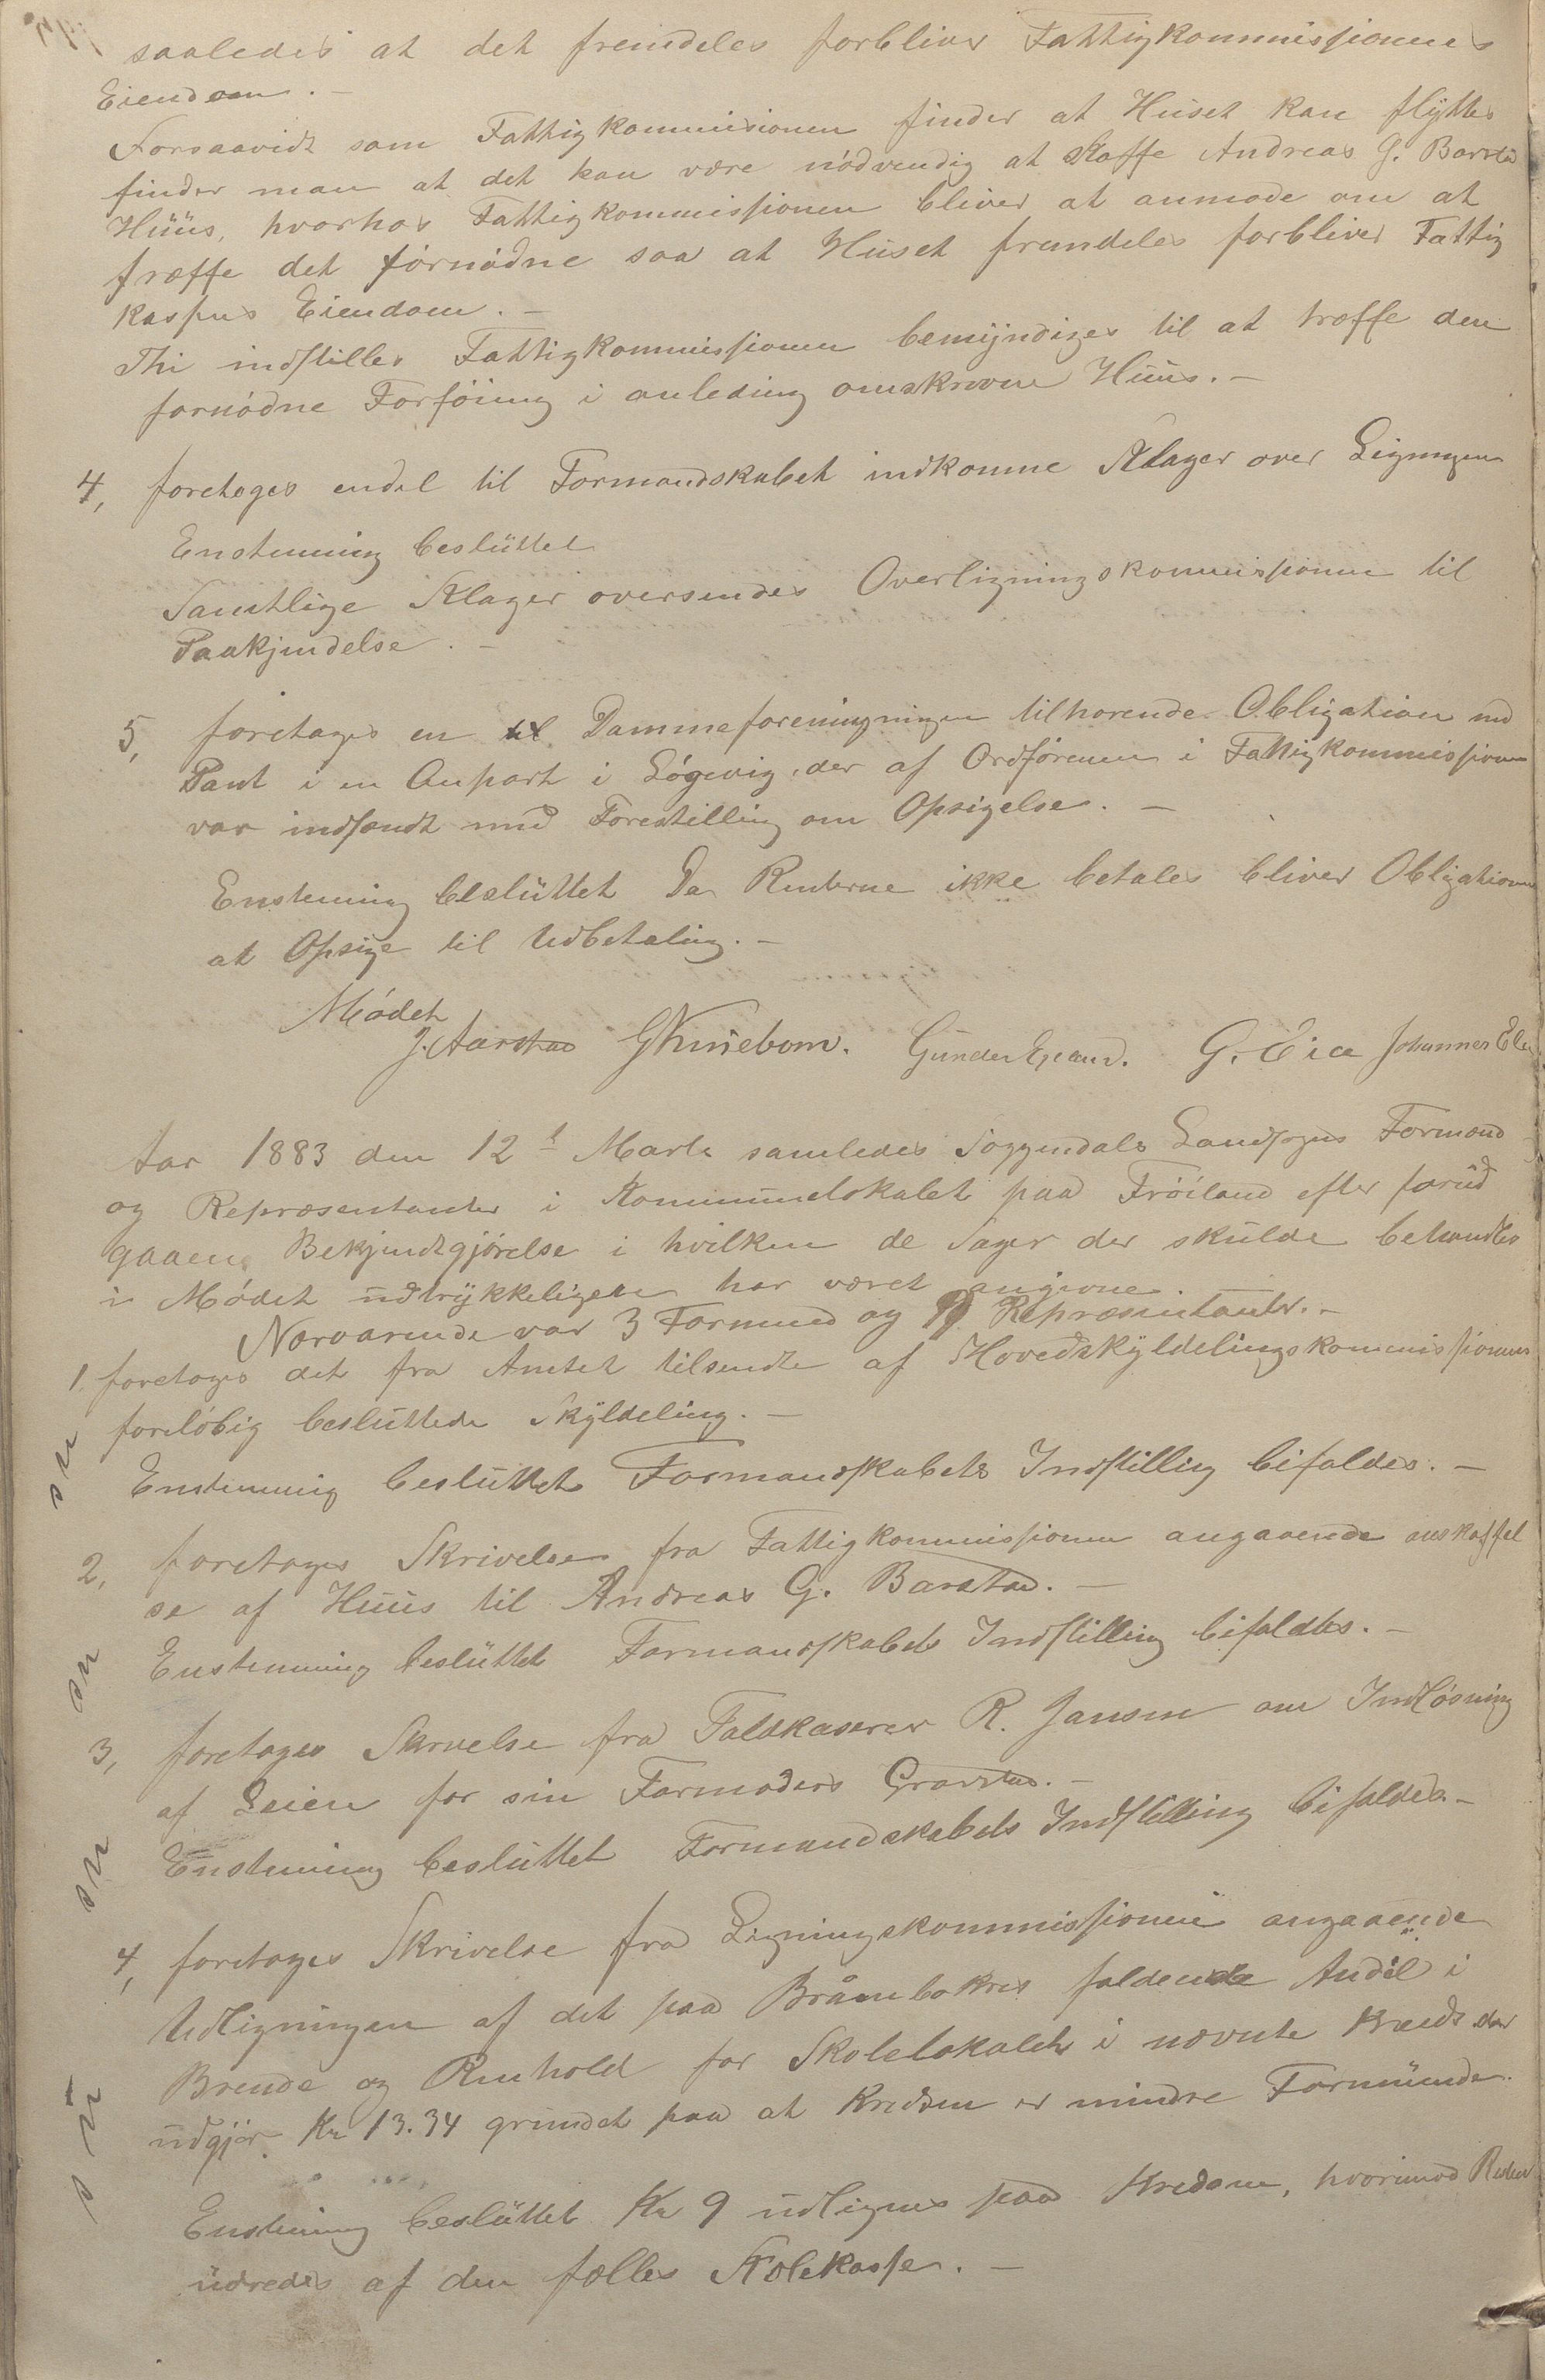 saaledes at det fremdeles forbliver Fattigkommissionens
Eiendom. –
Forsaavidt som Fattigkommisionen finder at Huset kan flyttes
finder man at det kan være nødvendig at skaffe Andreas G. Barstad
Huus, hvorhos Fattigkommissionen bliver at anmode om at
træffe det fornødne saa at Huset fremdeles forbliver Fattig
kassens Eiendom. –
Thi indstilles Fattigkommissionen bemyndiges til at træffe den
fornødne Forføining i anleding omskrevne Huus. –
4, foretoges endel til Formandskabet indkomne Klager over Ligningen
Enstemmig besluttet
Samtlige Klager oversendes Overligningskommissionen til
Paakjendelse. –
5, foretoges en til Dammeforeningningen tilhørende Obligation med
Pant i en Anpart i Løgevig, der af Ordføreren i Fattigkommissionen
var indsendt med Forestilling om Opsigelse. –
Enstemmig besluttet Da Renterne ikke betales bliver Obligationen
at Opsige til Udbetaling. –
Mødet
J. Aarstad Gunder Egeland. G. Eia Johannes
Aar 1883 den 12t Marts samledes Soggendals Landsogns Formænd
og Repræsentanter i Kommunelokalet paa Frøiland efter forud
gaaene Bekjendtgjørelse i hvilken de Sager der skulde behandles
i Mødet udtrykkeligen har været angivne. –
Nærværende var 3 Formænd og 9 Repræsentanter. –
1. foretoges det fra Amtet tilsendte af Hovedskyldelingskommissionen
foreløbig besluttede Skyldeling. –
Enstemmig besluttet Formandskabets Indstilling bifaldes. –
2, foretoges Skrivelse fra Fattigkommissionen angaaende anskaffel
se af Huus til Andreas G. Barstad. –
Enstemmig besluttet Formandskabets Indstilling bifaldtes. –
3, foretoges Skrivelse fra Toldkaserer R. Jansen om Indløsning
af Leien for sin Formoders Gravsted. –
Enstemmig besluttet Formandskabets Indstilling bifaldes. –
4, foretoges Skrivelse fra Ligningskommissionen angaaende
Udligningen af det paa Bråmbokres faldende Andel i
Brende og Renhold for Skolelokalet i nævnte Kreds der
udgjør Kr 13.34 grundet paa at Kredsen er mindre Formuende.
Enstemmig besluttet Kr 9 udlignes paa Kredsene, hvorimod Resten
udredes af den fælles Skolekasse. –